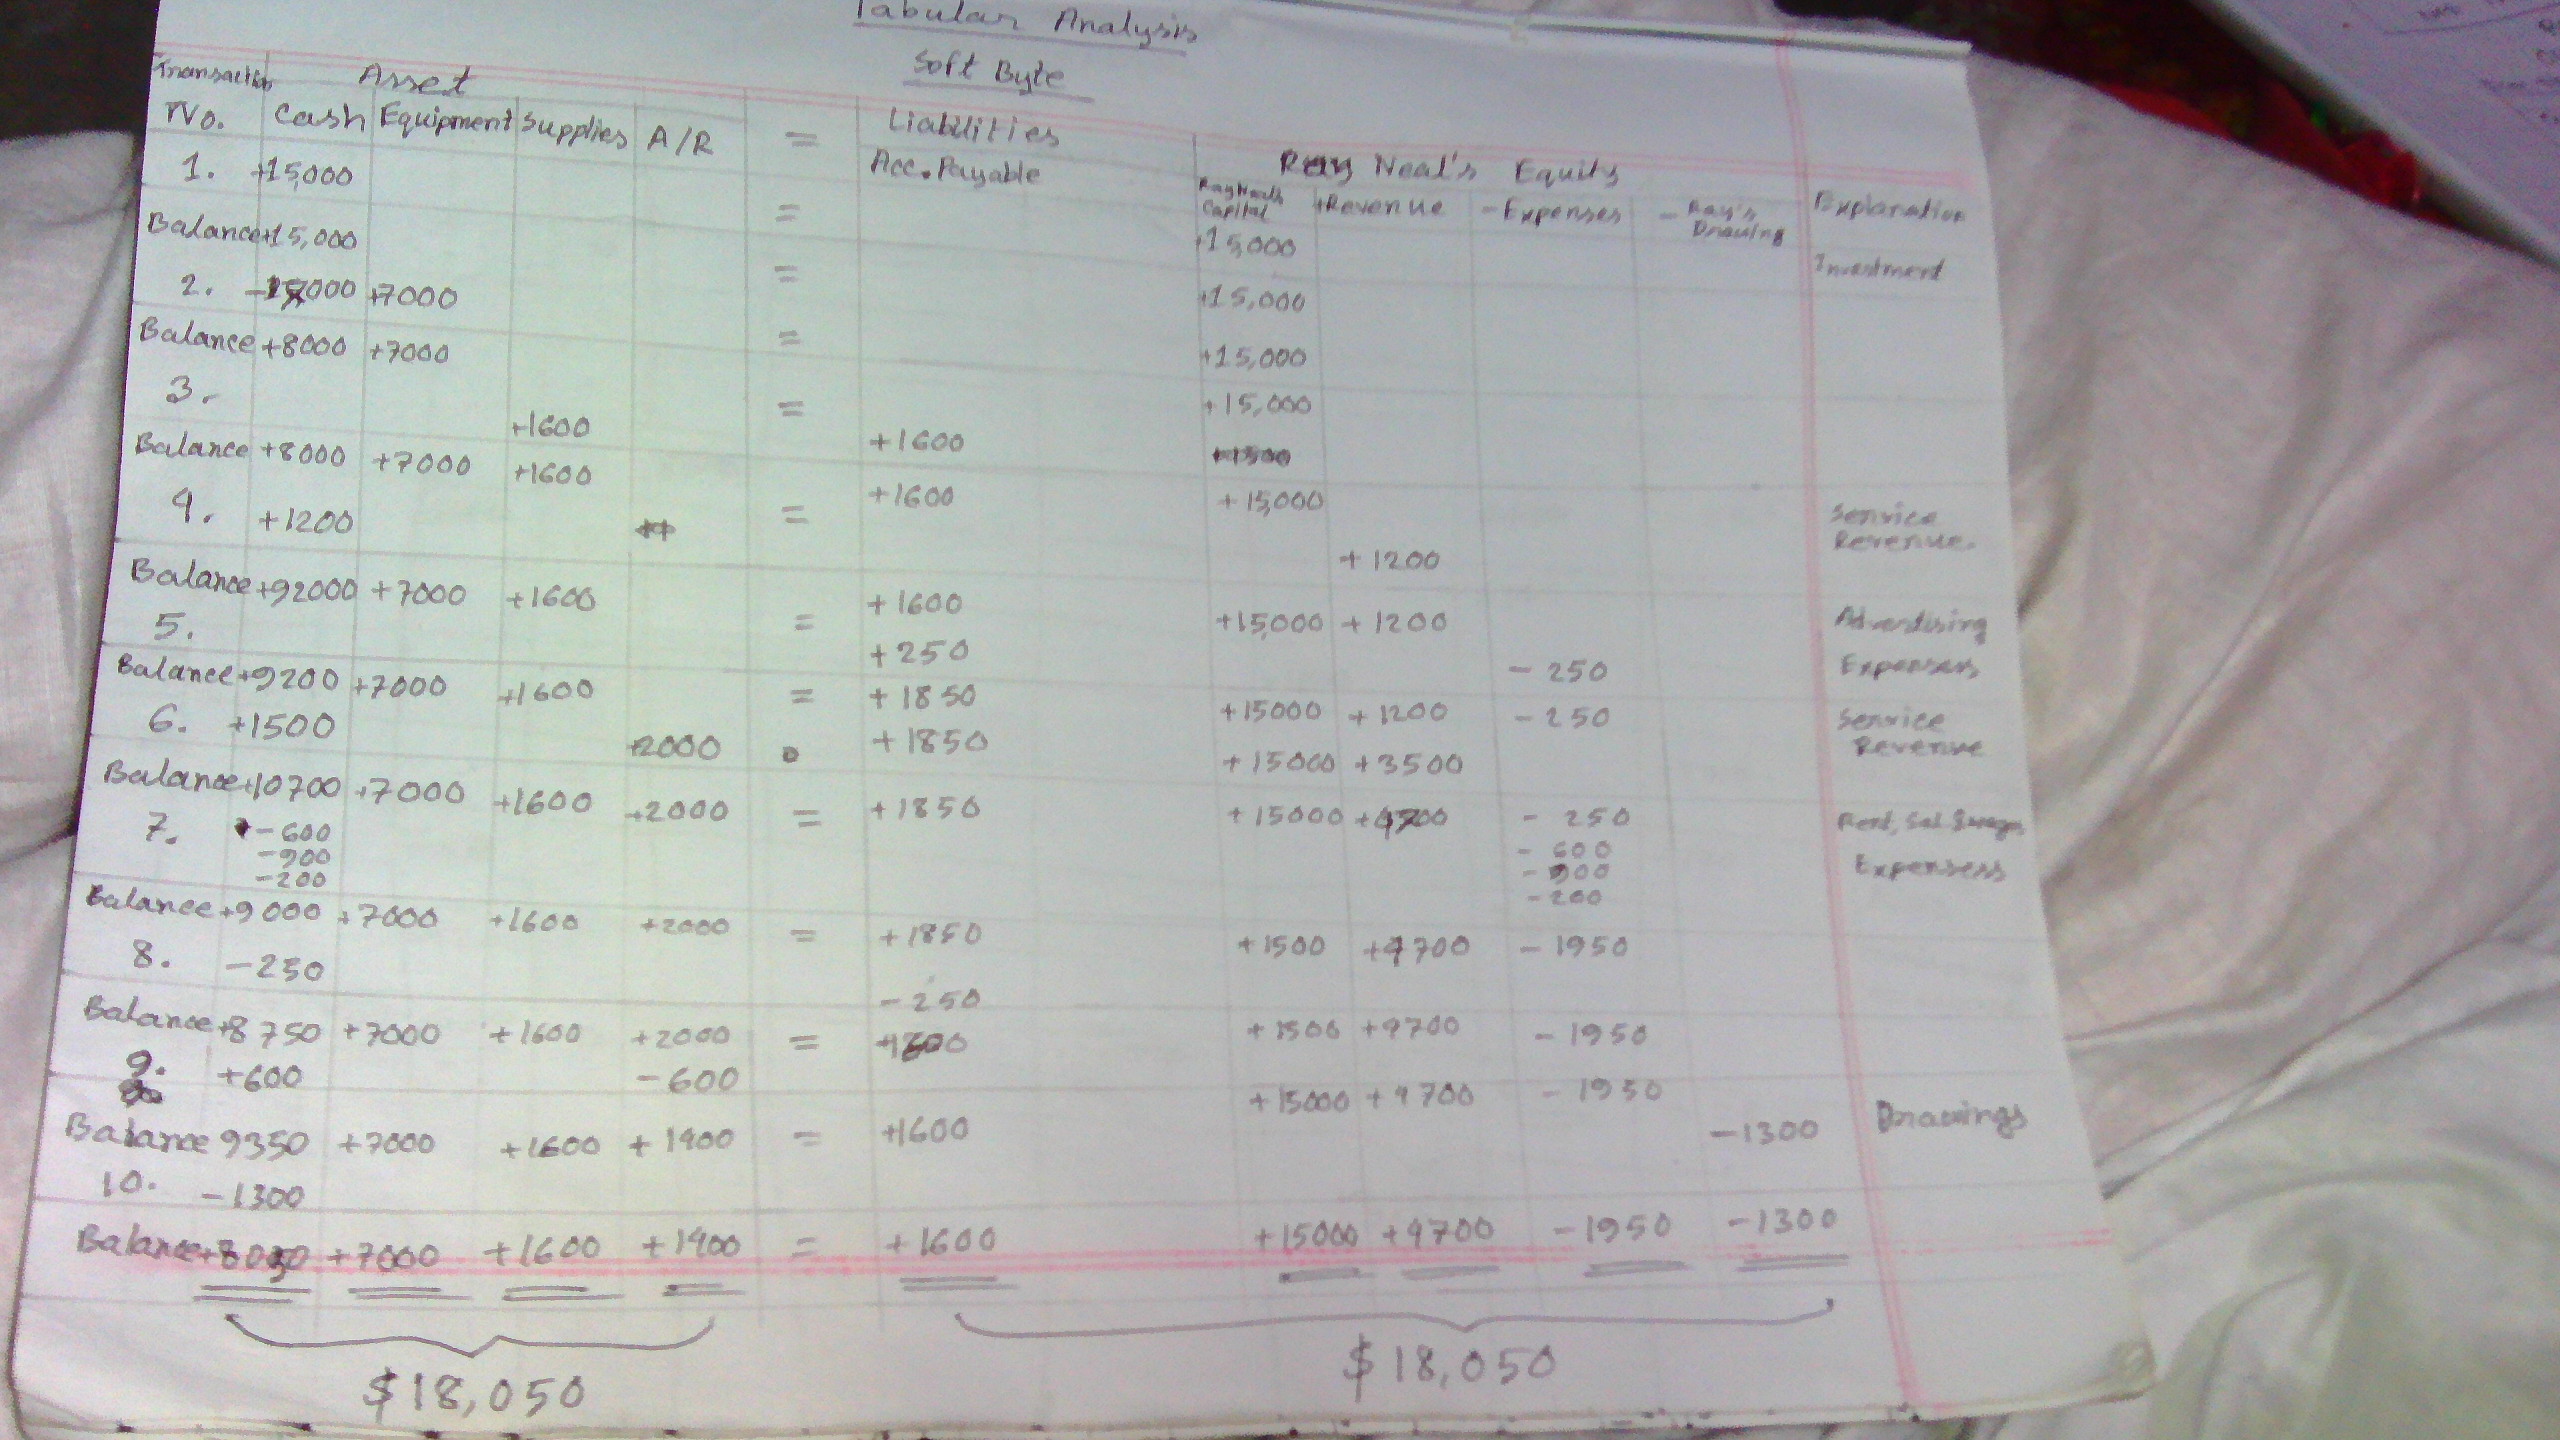 Tabular Analysis
Soft Byte
Transaction Asset
No. Cash Equipment Supplies A/R = Liabilities
Acc. Payable Ray Neal's Equity
Ray Neal's Capital +Revenue - Expenses - Ray's Drawing Explanation
1. +15,000 = +15,000 Investment
Balance +15,000 = +15,000
2. 000 +7000 = +15,000
Balance +8000 +7000 = +15,000
3. +1600 +1600
Balance +8000 +7000 +1600 = +1600 +15,000
4. +1200 +1200 Service Revenue.
Balance +92000 +7000 +1600 = +1600 +15,000 +1200
5. +250 - 250 Advertising Expensers
Balance +9200 +7000 +1600 = +1850 +15000 +1200 - 250
6. +1500 +2000 +1850 +15000 +3500 Service Revenue
Balance +10700 +7000 +1600 +2000 = +1850 +15000 +4700 - 250
7. -600 - 600 Rent, Sal
-900 - 900 Expensess
-200 - 200
Balance +9000 +7000 +1600 +2000 = +1850 +1500 +4700 - 1950
8. -250 -250
Balance +8750 +7000 +1600 +2000 = +1600 +1500 +4700 - 1950
9. +600 -600 +15000 +4700 - 1950
Balance 9350 +7000 +1600 +1400 = +1600
10. -1300 -1300 Drawings
Balance +8050 +7000 +1600 +1400 = +1600 +15000 +4700 -1950 -1300
$18,050 $18,050